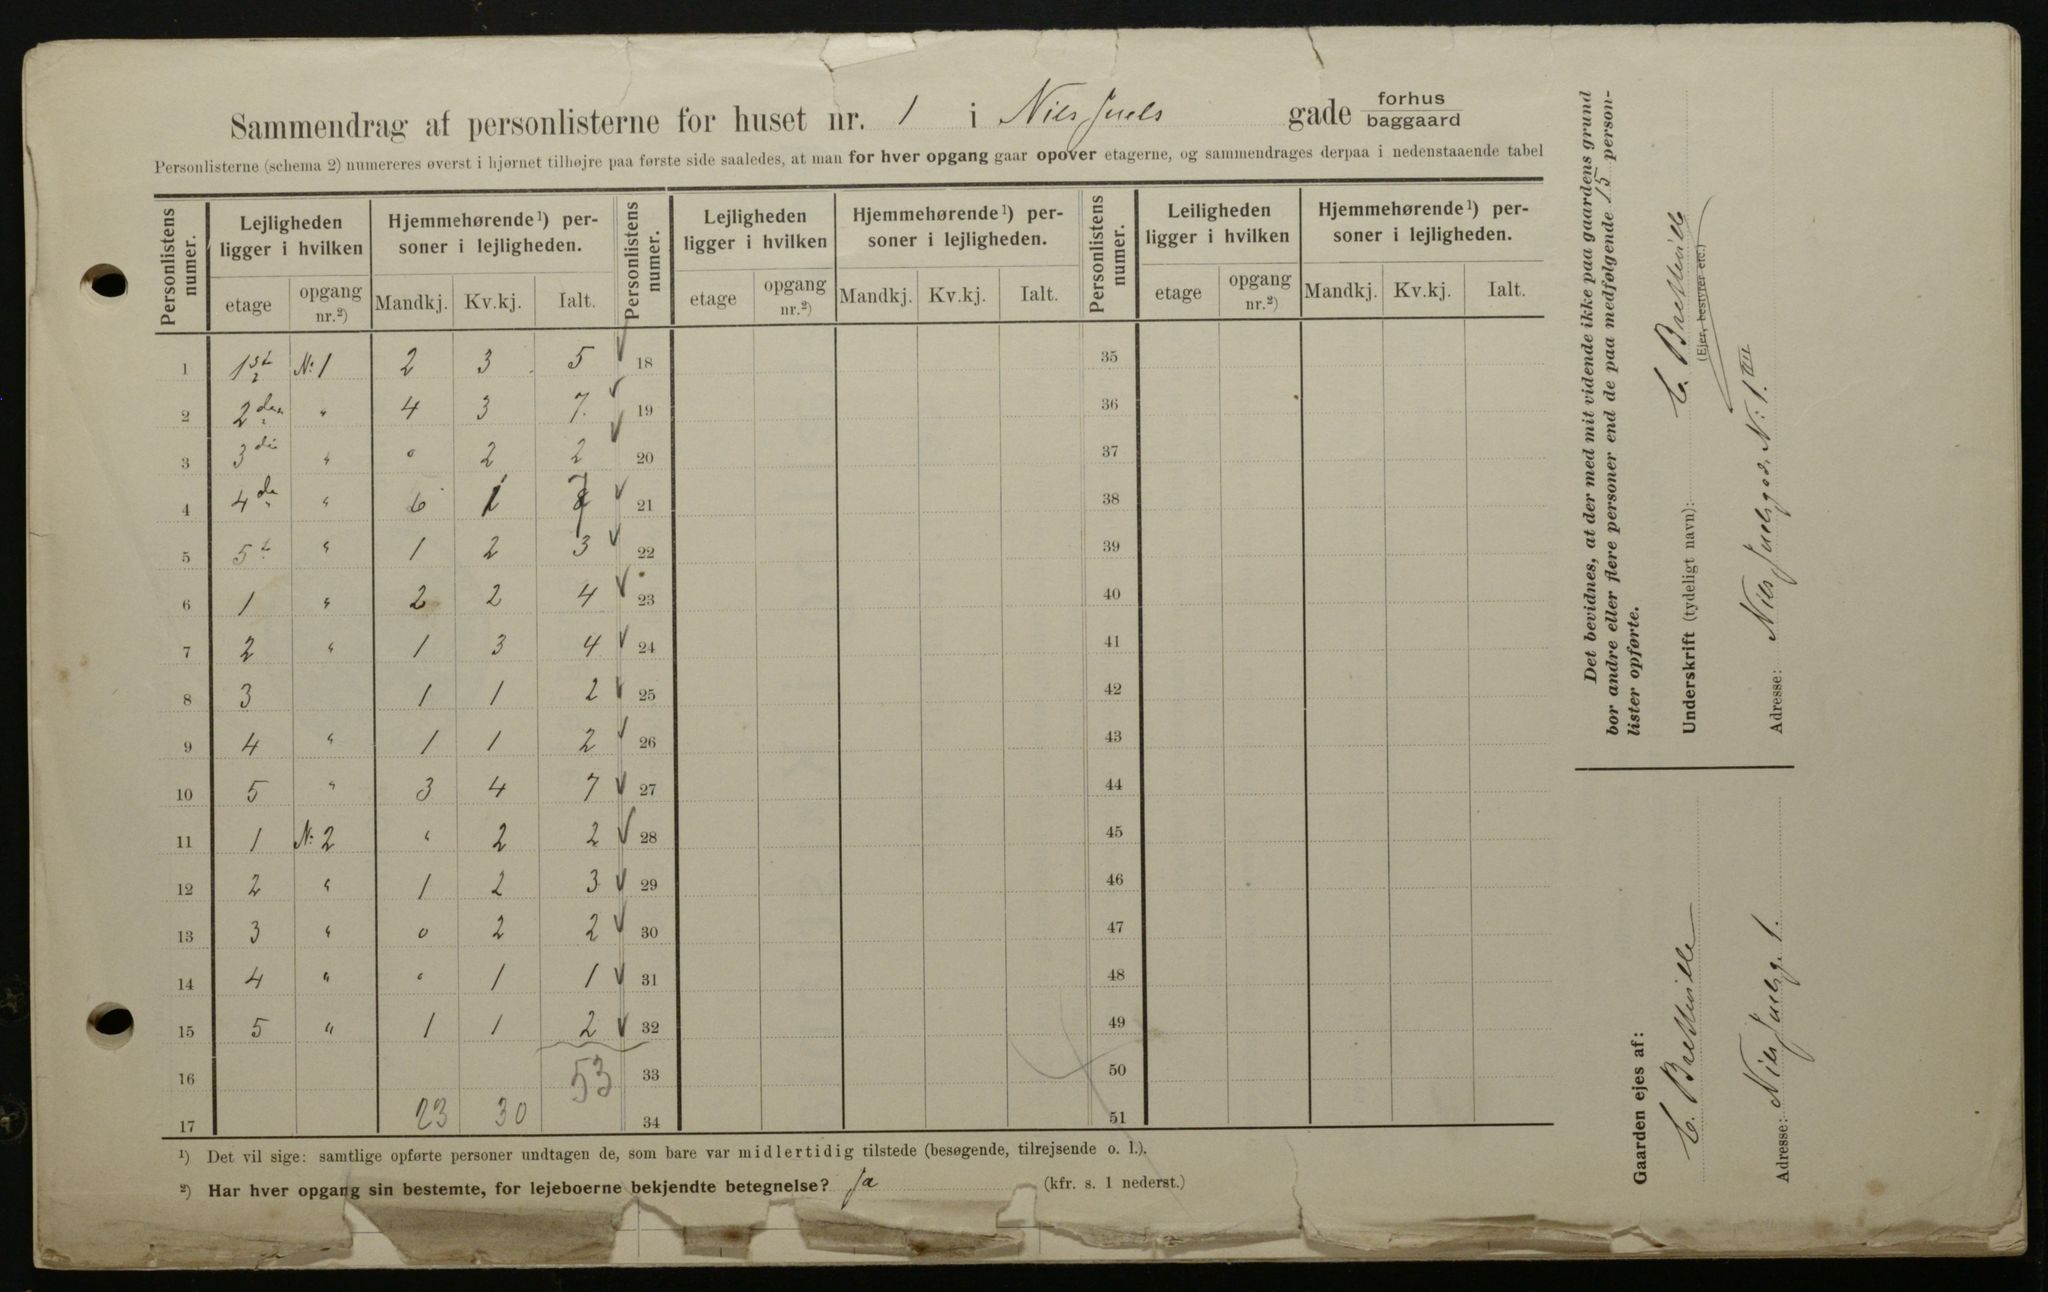 Sammendrag af personlisterne for huset nr. 1 i Nils Juels gade forhus baggaard
Personlisterne (schema 2) numereres øverst i hjørnet tilhøjre paa første side saaledes, at man for hver opgang gaar opover etagerne, og sammendrages derpaa i nedenstaaende tabel
Personlistens numer. Lejligheden ligger i hvilken Hjemmehørende ¹) personer i lejligheden. Personlistens numer. Lejligheden ligger i hvilken Hjemmehørende ¹) personer i lejligheden. Personlistens numer. Leiligheden ligger i hvilken Hjemmehørende ¹) personer i lejligheden.
etage opgang nr.²) Mandkj. Kv.kj. Ialt. etage opgang nr.²) Mandkj. Kv.kj. Ialt. etage opgang nr.²) Mandkj. Kv.kj. Ialt.
1 1st N: 1 2 3 5 18 35
2 2den " 4 3 7 19 36
3 3die " 0 2 2 20 37
4 4de " 6 1 7 21 38
5 5t " 1 2 3 22 39
6 1 " 2 2 4 23 40
7 2 " 1 3 4 24 41
8 3 1 1 2 25 42
9 4 " 1 1 2 26 43
10 5 " 3 4 7 27 44
11 1 N: 2 " 2 2 28 45
12 2 " 1 2 3 29 46
13 3 " 0 2 2 30 47
14 4 " 0 1 1 31 48
15 5 " 1 1 2 32 49
16 53 33 50
17 23 30 34 51
¹) Det vil sige: samtlige opførte personer undtagen de, som bare var midlertidig tilstede (besøgende, tilrejsende o. l.).
²) Har hver opgang sin bestemte, for lejeboerne bekjendte betegnelse? Ja (kfr. s. 1 nederst.)
Det bevidnes, at der med mit vidende ikke paa gaardens grund
bor andre eller flere personer end de paa medfølgende 15 person-
lister opførte.
Underskrift (tydeligt navn):
(Ejer, bestyrer etc.)
Adresse: Nils Juelsgad. N: 1. III
Gaarden ejes af:
Adresse: Nils Juelsg. 1.